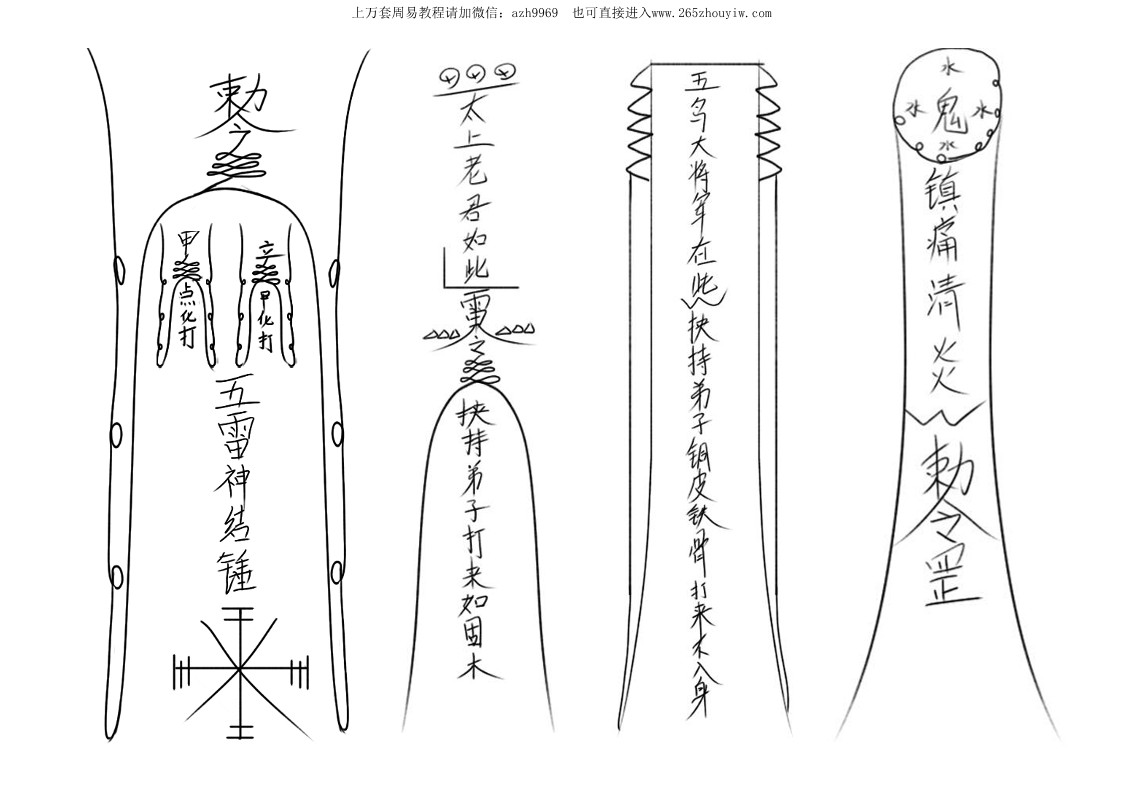 上万套周易教程请加微信：azh9969 也可直接进入www.265zhouyiw.com
勅令
甲
点化打
立
日化打
五雷神结锤
太上老君如此
雷令
挟持弟子打来如固木
五鸟大将军在此
挟持弟子铜皮铁骨打来木入身
水
水 鬼 水
水
镇痛清火火
勅令罡